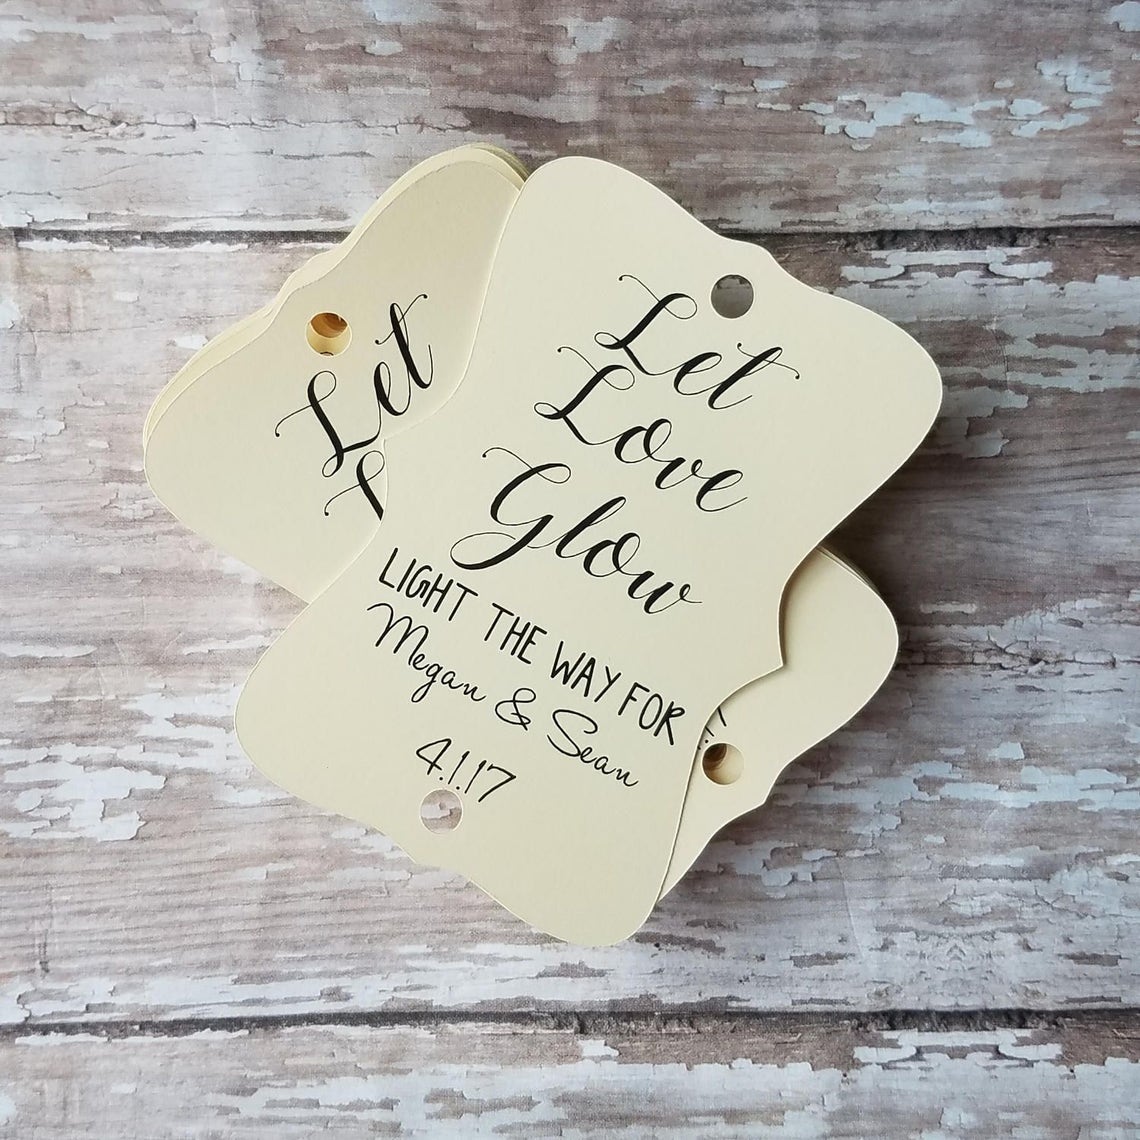 Let
Love
Glow
LIGHT THE WAY FOR
Megan & Sean
4.1.17
Let